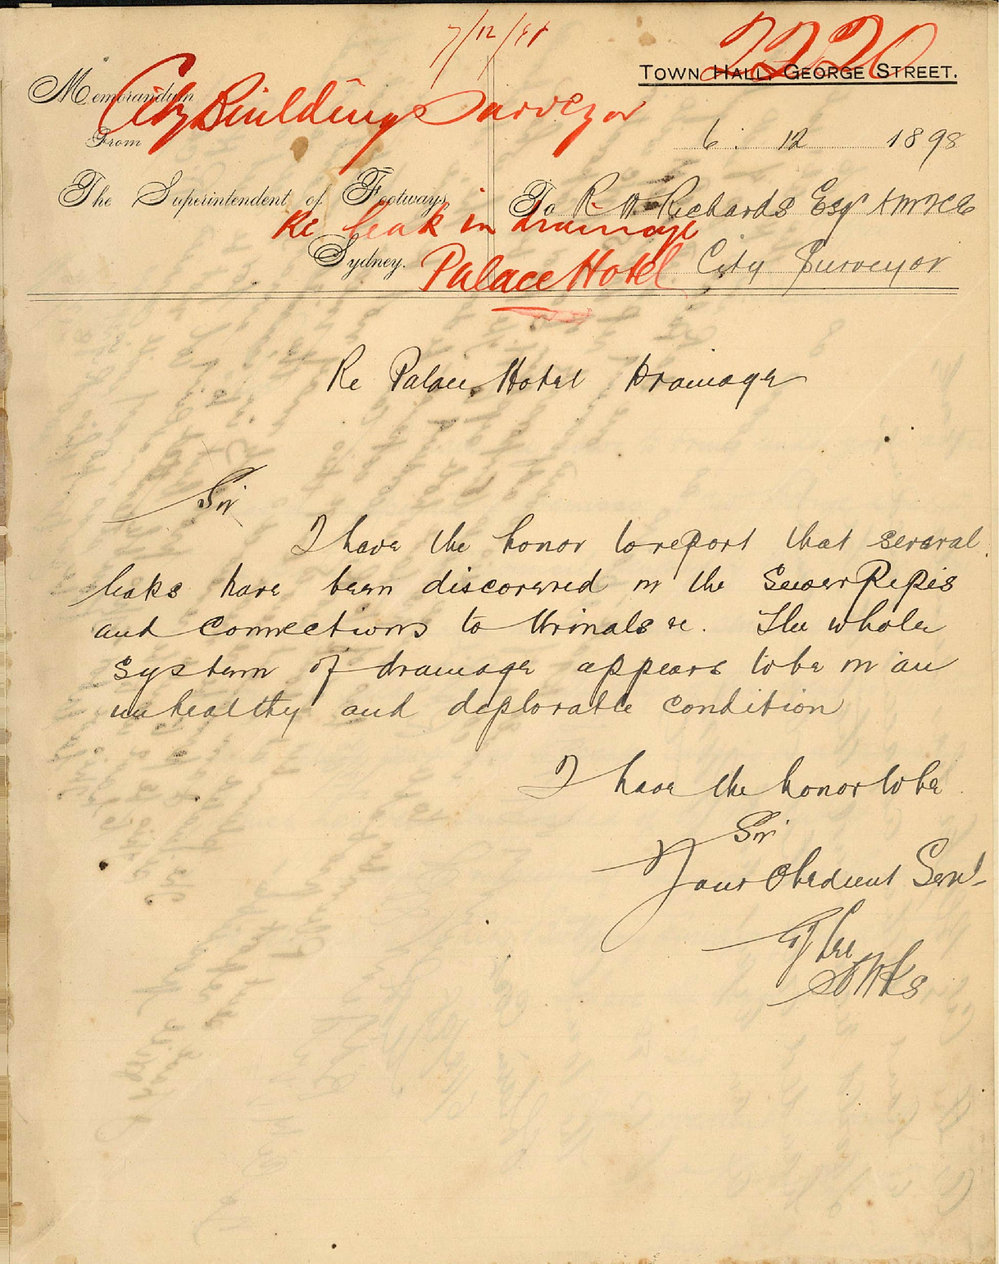 7/12/98
2220
TOWN HALL, GEORGE STREET.
Memorandum
City Building Surveyor
From
6. 12 1898
The Superintendent of Footways,
To R. W. Richards Esqr AMICE
Re leak in drainage
Sydney.
City Surveyor
Palace Hotel
Re Palace Hotel Drainage
Sir
I have the honor to report that several
leaks have been discovered in the Sewer Pipes
and connections to Urinals &c. The whole
system of drainage appears to be in an
unhealthy and deplorable condition
I have the honor to be
Sir
Your Obedient Servt